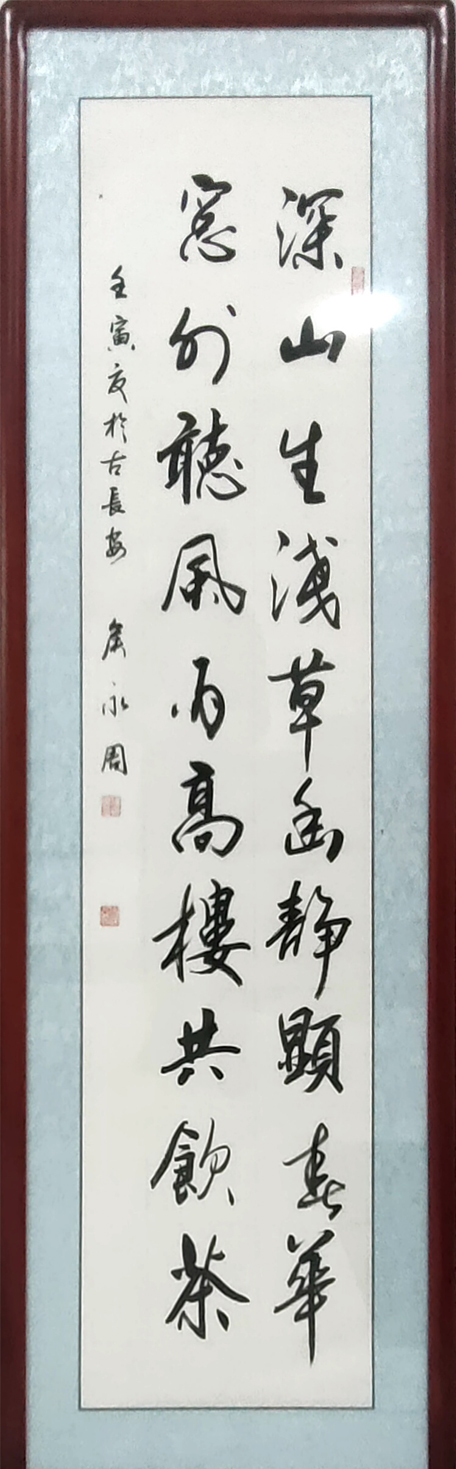 深山生浅草幽静顯春華
窓外聽風雨高樓共飲茶
壬寅夏於古長安 永周